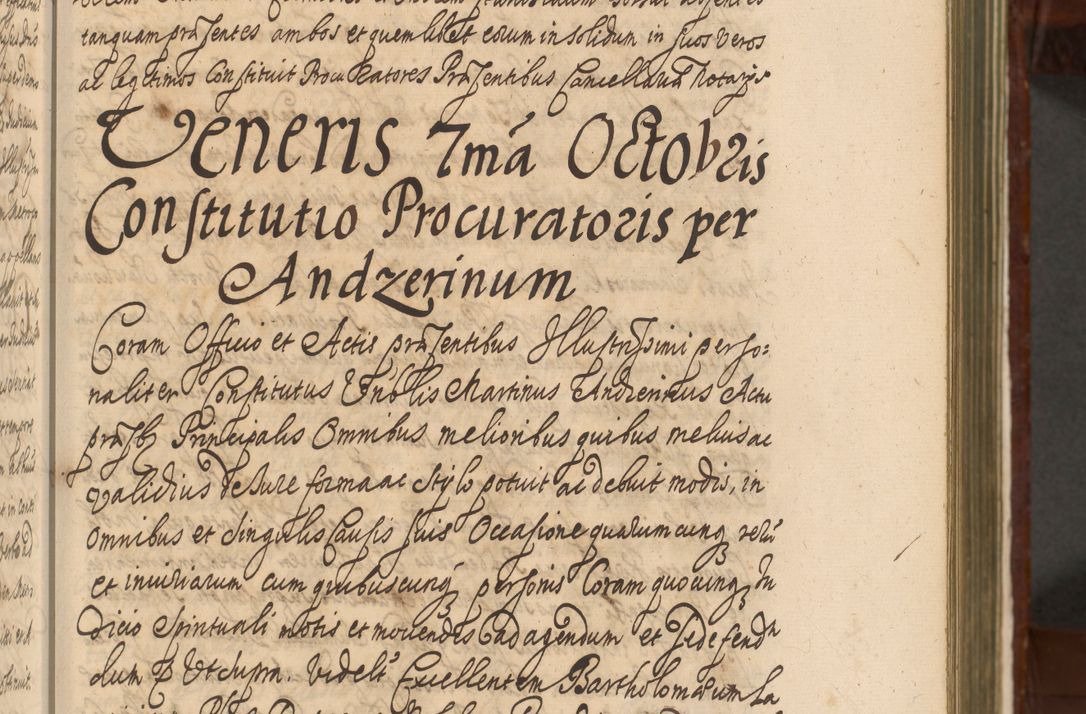 tanquam præsentes ambos et quemlibet eorum in solidum in suos Veros
ac legitimos Constituit Procuratores Præsentibus Cancellariæ Notarijs
Veneris 7mâ Octobris
Constitutio Procuratoris per
Andzerinum
Coram Officio et Actis præsentibus Illustrissimi perso:
naliter Constitutus Hnôblis Martinus Andzerinus Actu
præsb Principalis Omnibus melioribus quibus melius ac
validius de Jure forma ac stylo potuit ac debuit modis, in
omnibus et singulis Causis suis Occasione quarumcunq rerũ
et iniuriarum cum quibuscunq personis Coram quocunq Ju
dicio Spirituali motis et movendis ad agendum et se defend
dum p Ut supra. Videlt Excellentem Bartholomæum La